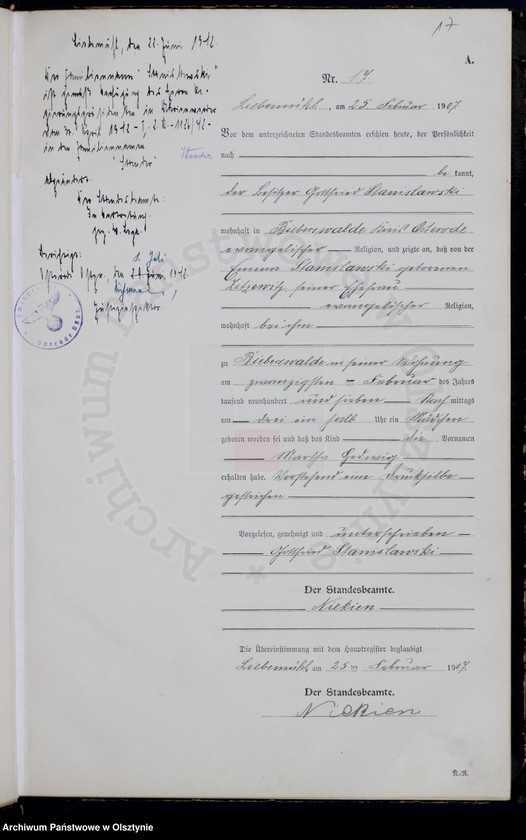 17
A.
Nr. 17
Liebemühl, am 25 Februar 1907
Vor dem unterzeichneten Standesbeamten erschien heute, der Persönlichkeit
nach
be kannt,
der Besitzer Gottfried Stanislawski
wohnhaft in Bieberswalde Kreis Osterode
evangelischer Religion, und zeigte an, daß von der
Emma Stanislawski geborenen
seiner Ehefrau
evangelischer Religion,
wohnhaft bei ihm
zu Bieberswalde in seiner Wohnung
am zwanzigsten Februar des Jahres
tausend neunhundert und sieben Nach mittags
um drei ein halb Uhr ein Mädchen
geboren worden sei und daß das Kind die Vornamen
Martha Hedwig
erhalten habe. Vorstehend eine Druckfolbe
gestrichen
Vorgelesen, genehmigt und unterschrieben
Gottfried Stanislawski
Der Standesbeamte.
Niekien
Die Übereinstimmung mit dem Hauptregister beglaubigt
Liebemühl, am 25 ten Februar 1907.
Der Standesbeamte.
Niekien
Liebemühl, den 22. Juni 1942.
Der Familienname
ist gemäß Verfügung des Herrn Re-
gierungspräsidenten in Marienwerder
vom 30. April 1942
in den Familiennamen
abgeändert.
Der Standesbeamte:
In Vertretung:
1. Juli
Archiwum Państwowe w Olsztynie
Archiwum Państwowe w Olsztynie